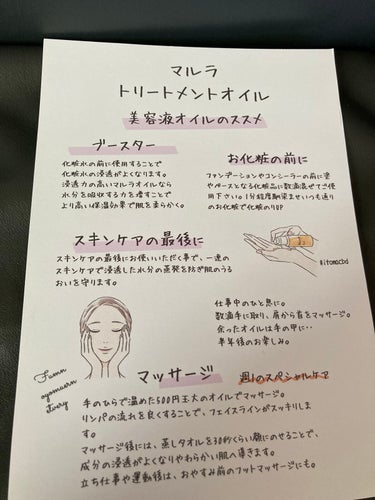 マルラ
トリートメントオイル
美容液オイルのススメ
ブースター
化粧水の前に使用することで
化粧水の浸透がよくなります。
浸透力の高いマルラオイルなら
水分を吸収する力を増すことで
より高い保湿効果で肌を柔らかく。
お化粧の前に
ファンデーションやコンシーラーの前に塗
やベースとなる化粧品に数滴混ぜてご使
用下さい。1分程度馴染ませいつも通り
のお化粧で化粧のりUP
スキンケアの最後に
スキンケアの最後にお使いいただく事で、一連の
スキンケアで浸透した水分の蒸発を防ぎ肌のうる
おいを守ります。
仕事中のひと息に。
数滴手に取り、肩から首をマッサージ。
余ったオイルは手の甲に‥
半年後のお楽しみ。
マッサージ
週1のスペシャルケア
手のひらで温めた500円玉大のオイルでマッサージ。
リンパの流れを良くすることで、フェイスラインがスッキリしま
す。
マッサージ後には、蒸しタオルを30秒くらい顔にのせることで、
成分の浸透がよくなりやわらかい肌へ導きます。
立ち仕事や運動後は、おやすみ前のフットマッサージにも。